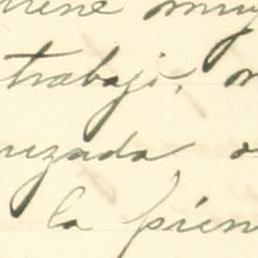 iene muy
trabajo, m
uzada o
la pien